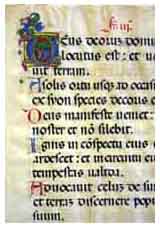 Deus deorum domi
locutus est: et v
uit terram.
A solis ortu usq ad occas
ex sion species decoris e
Deus manifeste veniet:
noster et nō silebit.
Ignis in cōspectu eius
ardescet: et in circuitu eiu
tempestas valida.
Advocavit celum de sur
et terrā discernere popu
suum.